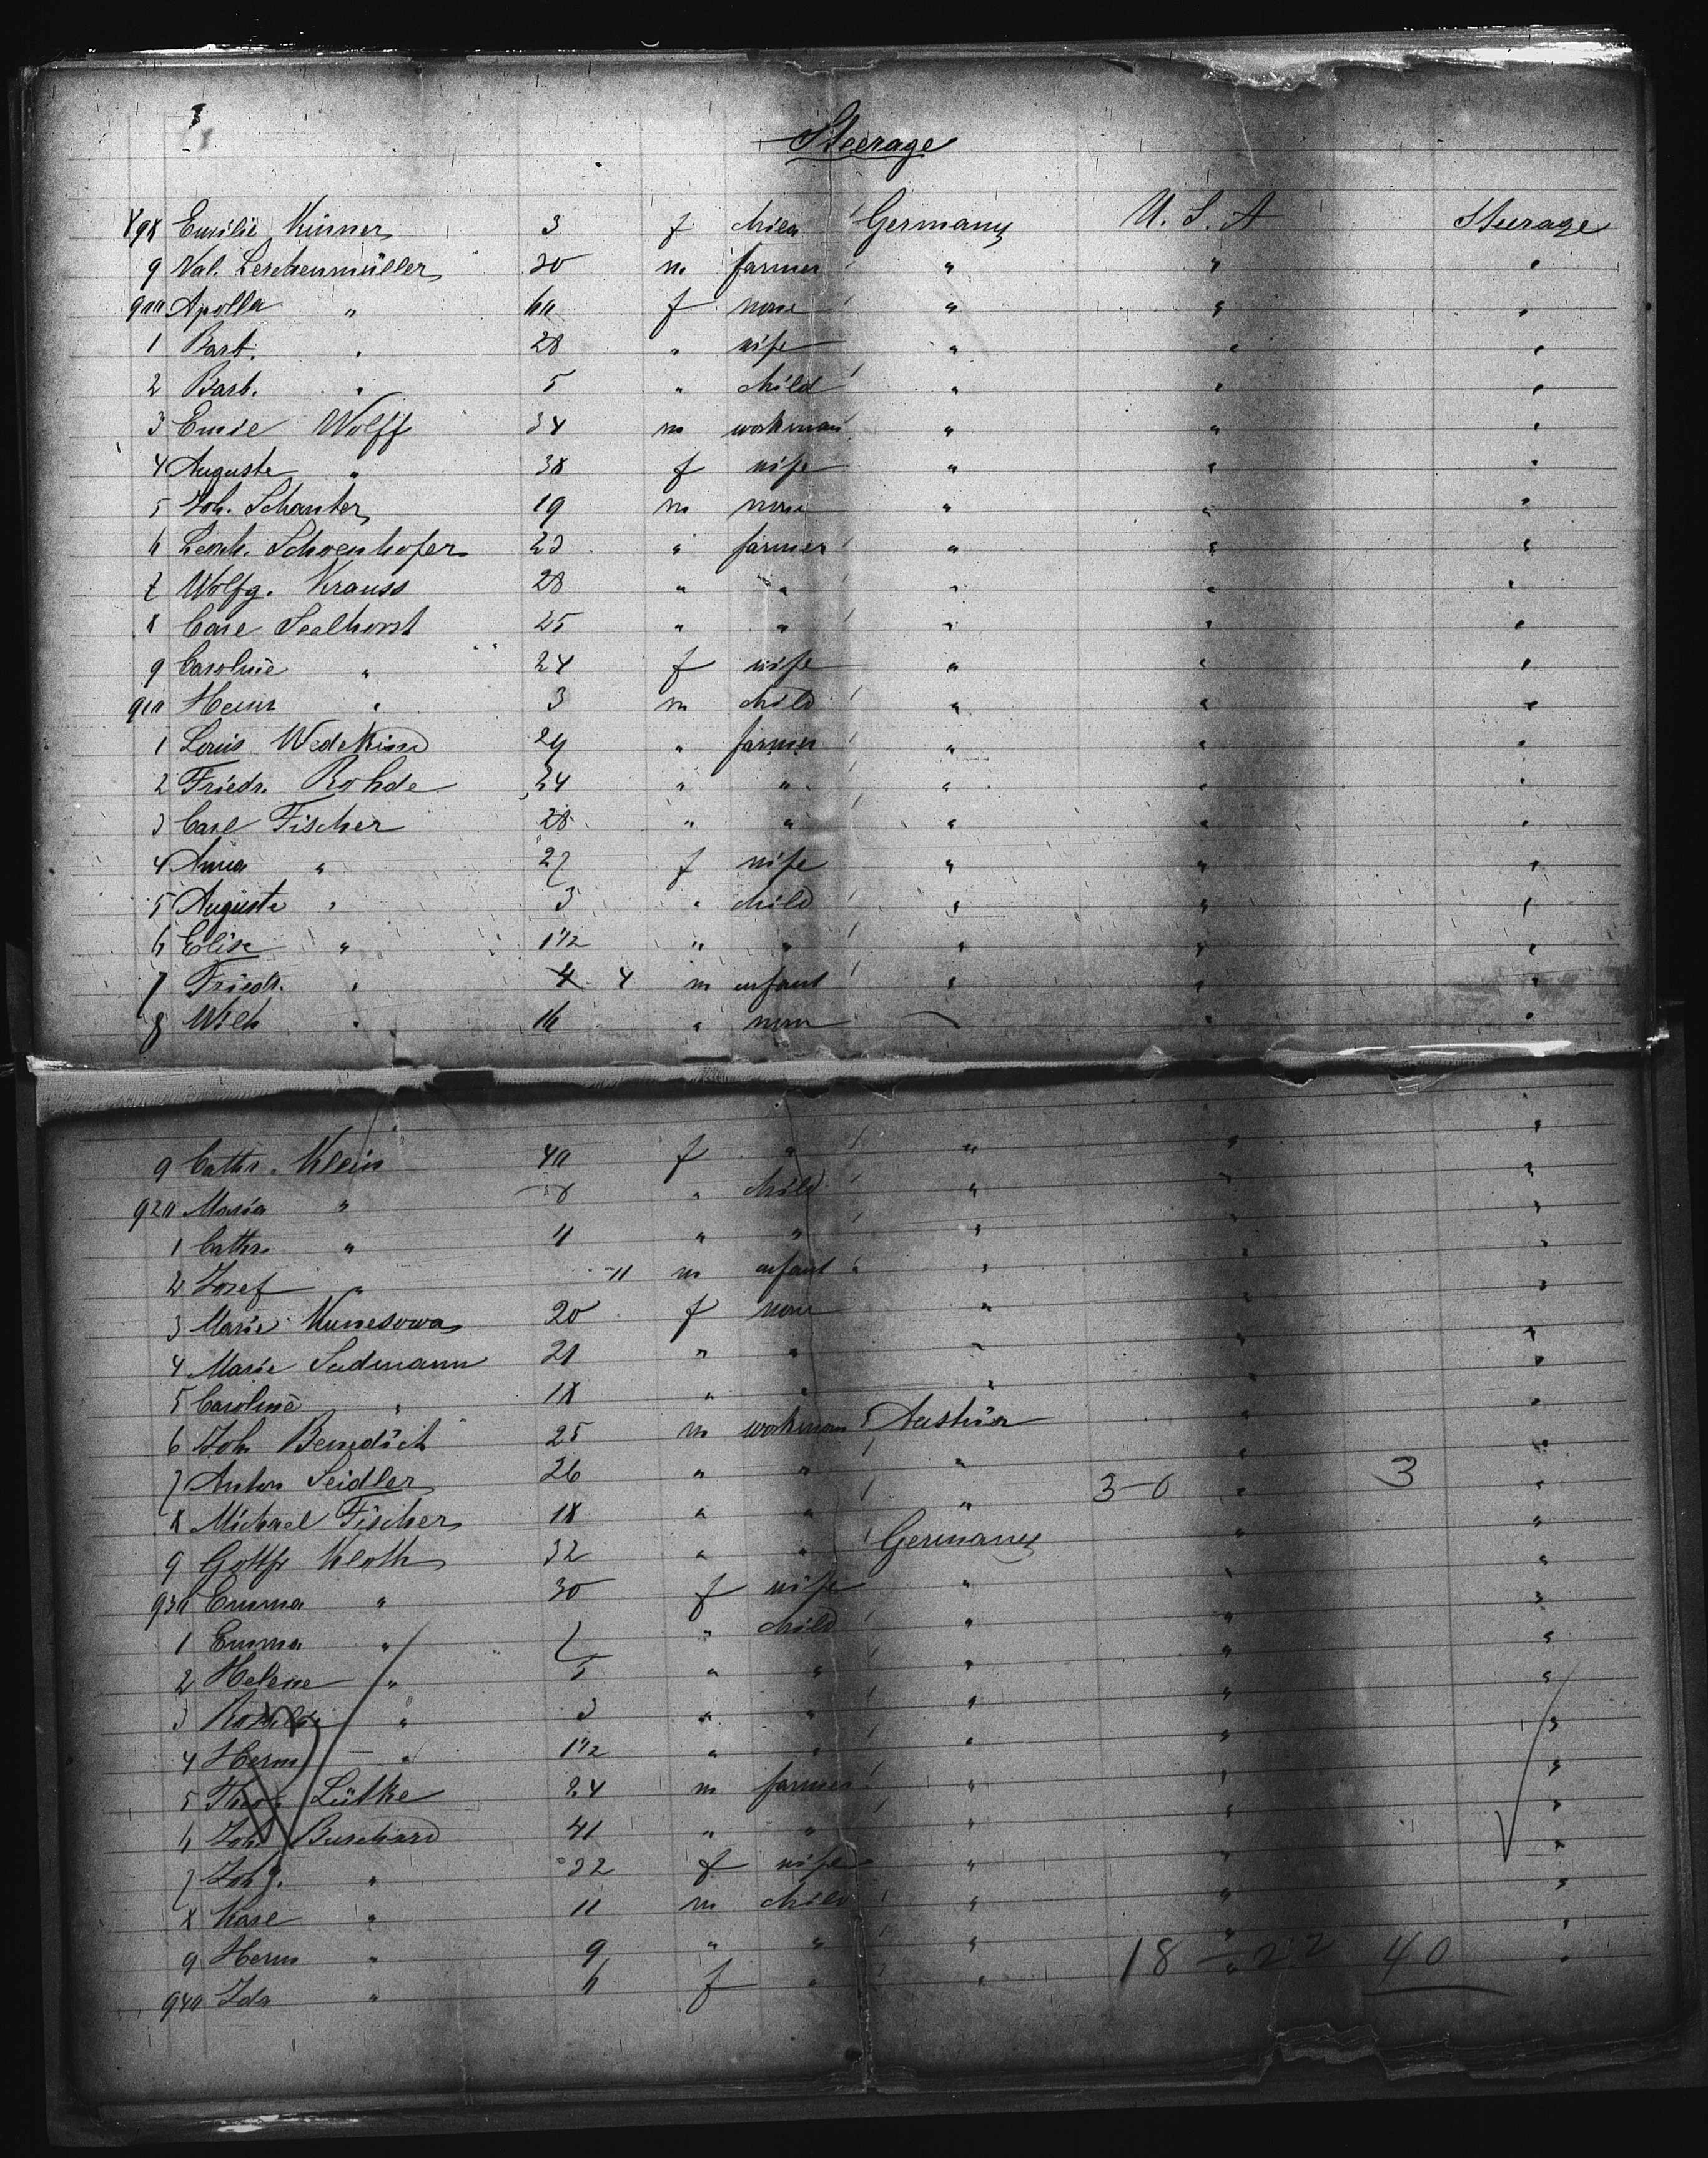 Steerage
898 Emilie Kinner 3 f child Germany U. S. A Steerage
9 Val. Lerchenmüller 30 m farmer " " "
900 Apolla " 60 f none " " "
1 Barb. " 28 " wife " " "
2 Barb. " 5 " child " " "
3 Emie Wolff 34 m workman " " "
4 Auguste " 38 f wife " " "
5 Joh. Schanter 19 m none " " "
6 Leonh. Schoenhofer 23 " farmer " " "
7 Wolfg. Krauss 28 " " " " "
8 Carl Seelhorst 25 " " " " "
9 Caroline " 24 f wife " " "
910 Heinr " 3 m child " " "
1 Louis Wedekind 29 " farmer " " "
2 Friedr. Rohde 24 " " " " "
3 Carl Fischer 28 " " " " "
4 Anna " 27 f wife " " "
5 Auguste " 3 " child " " "
6 Elise " 1 1/2 " " " " "
7 Friedr. " 4 4 m infant " " "
8 Wilh " 16 " none " "
9 Cathr. Klein 40 f " " " "
920 Maria " 8 " child " " "
1 Cathr. " 4 " " " " "
2 Josef " 11 m infant " " "
3 Marie Kunesowa 20 f none " " "
4 Marie Sadmann 21 " " " " "
5 Caroline " 18 " " " " "
6 Joh Benedict 25 m workman Austria " "
7 Anton Seidler 26 " " " 3-0 " 3 "
8 Michael Fischer 18 " " " " "
9 Gottfr Kloth 32 " " Germany " "
930 Emma " 30 f wife " " "
1 Emma " 7 " child " " "
2 Helene " 5 " " " " "
3 " 3 " " " " "
4 Herm " 1 1/2 " " " " "
5 Lütke 24 m farmer " " "
6 Joh Burchard 41 " " " " "
7 Joh. " 32 f wife " " "
8 Karl " 11 m child " " "
9 Herm " 9 " " " " "
940 Ida " 6 f " " 18 - 22 40 "